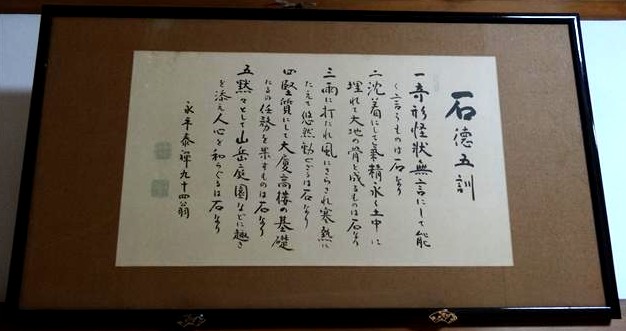 石徳五訓
一奇形怪状無言にして能
く言うものは石なり
二沈着にして気精永く土中に
埋れて大地の骨と成るものは石なり
三雨に打たれ風にさらされ寒熱に
たえて悠然動ぜざるは石なり
四堅質にして大厦高楼の基礎
たるの任務を果すものは石なり
五黙々として山岳庭園などに趣き
を添え人心を和らぐるは石なり
永平泰禅九十四翁